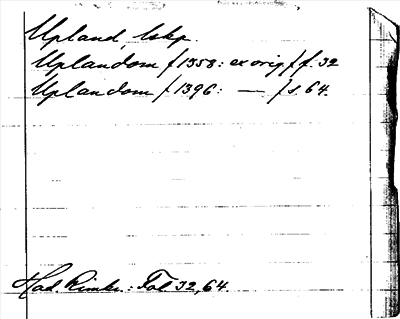 Upland, lskp.
Uplandom /1353: ex orig./ f. 32
Uplandom /1396: — / s. 64.
Had. Rimbe.: Fol 32, 64.